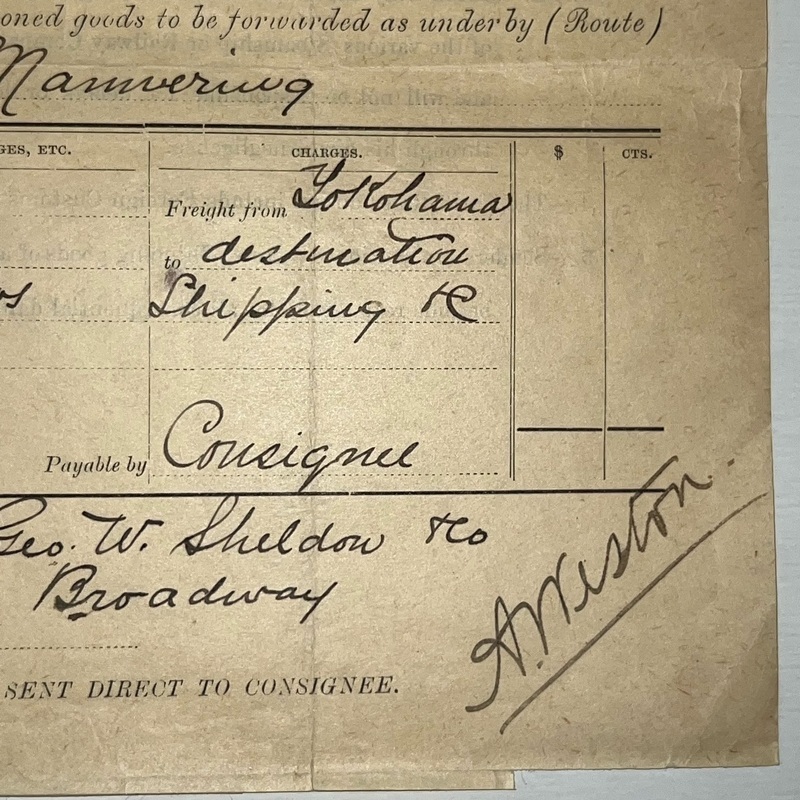 oned goods to be forwarded as under by (Route)
Mannering
GES, ETC.
CHARGES.
$
CTS.
Freight from Yokohama
to destination
Shipping &c
Payable by Consignee
Geo. W. Sheldon &Co
Broadway
A. Weston.
SENT DIRECT TO CONSIGNEE.